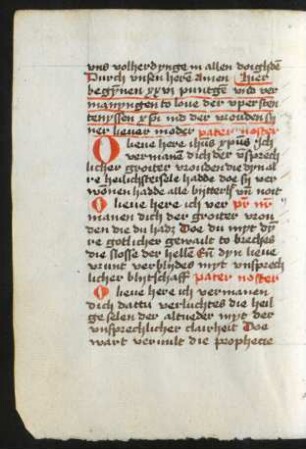 vns volherdynge in allen doighden
Durch vnsen here Amen Hier
begynnen xxvi puntge vnd ver
manyngen to loue der vpersten
tenyssen xpi vnd der vrouden sy
ner lieuer moder pater noster
O lieue here ihus xpus Ich
vermane dich der vnsprech
licher groiter vrouden die dyn al
re heilichste sele hadde doe sy ver
wonnen hadde alle bitterh noit
O lieue here ich ver pr nr
manen dich der groiter vrou
den die du hads Doe du myt dy
re gotlicher gewault to brechs
die slosse der hellen En dyn lieue
vrunt verblydes myt vnsprech
licher blijtschaff pater noster
O lieue here ich vermanen
dich dattu verluchtes die heil
ge selen der altueder myt der
vnsprechlicher clairheit Doe
wart veruult die prophecie